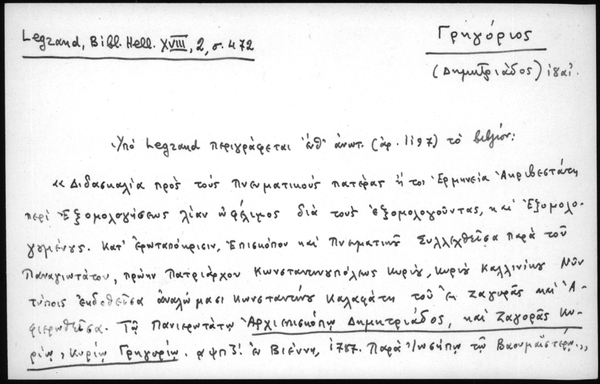 Legrand, Bibl. Hell. XVIII, 2, σ. 472
Γρηγόριος
(Δημητριάδος)
Ὑπὸ Legrand περιγράφεται ἔνθ' ἀνωτ. (ἀρ. 1197) τὸ βιβλίον:
«Διδασκαλία πρὸς τοὺς Πνευματικοὺς πατέρας ἤτοι Ἑρμηνεία Ἀκριβεστάτη
περὶ Ἐξομολογήσεως λίαν ὠφέλιμος διὰ τοὺς ἐξομολογοῦντας, καὶ Ἐξομολο-
γουμένους. Κατ' ἐρωταπόκρισιν, Ἐπισκόπου καὶ Πνευματικοῦ Συλλεχθεῖσα παρὰ τοῦ
Παναγιωτάτου, πρώην Πατριάρχου Κωνσταντινουπόλεως Κυρίου, Κυρίου Καλλινίκου Νῦν
τύποις ἐκδοθεῖσα ἀναλώμασι Κωνσταντίνου Καλαφάτη τοῦ ἐκ Ζαγορᾶς καὶ Ἀ-
φιερωθεῖσα. Τῷ Πανιερωτάτῳ Ἀρχιεπισκόπῳ Δημητριάδος, καὶ Ζαγορᾶς Κυ-
ρίῳ, Κυρίῳ Γρηγορίῳ. αψπζ! ἐν Βιέννῃ, 1787. Παρὰ Ἰωσήπῳ τῷ Βαουμαϊστέρῳ.»